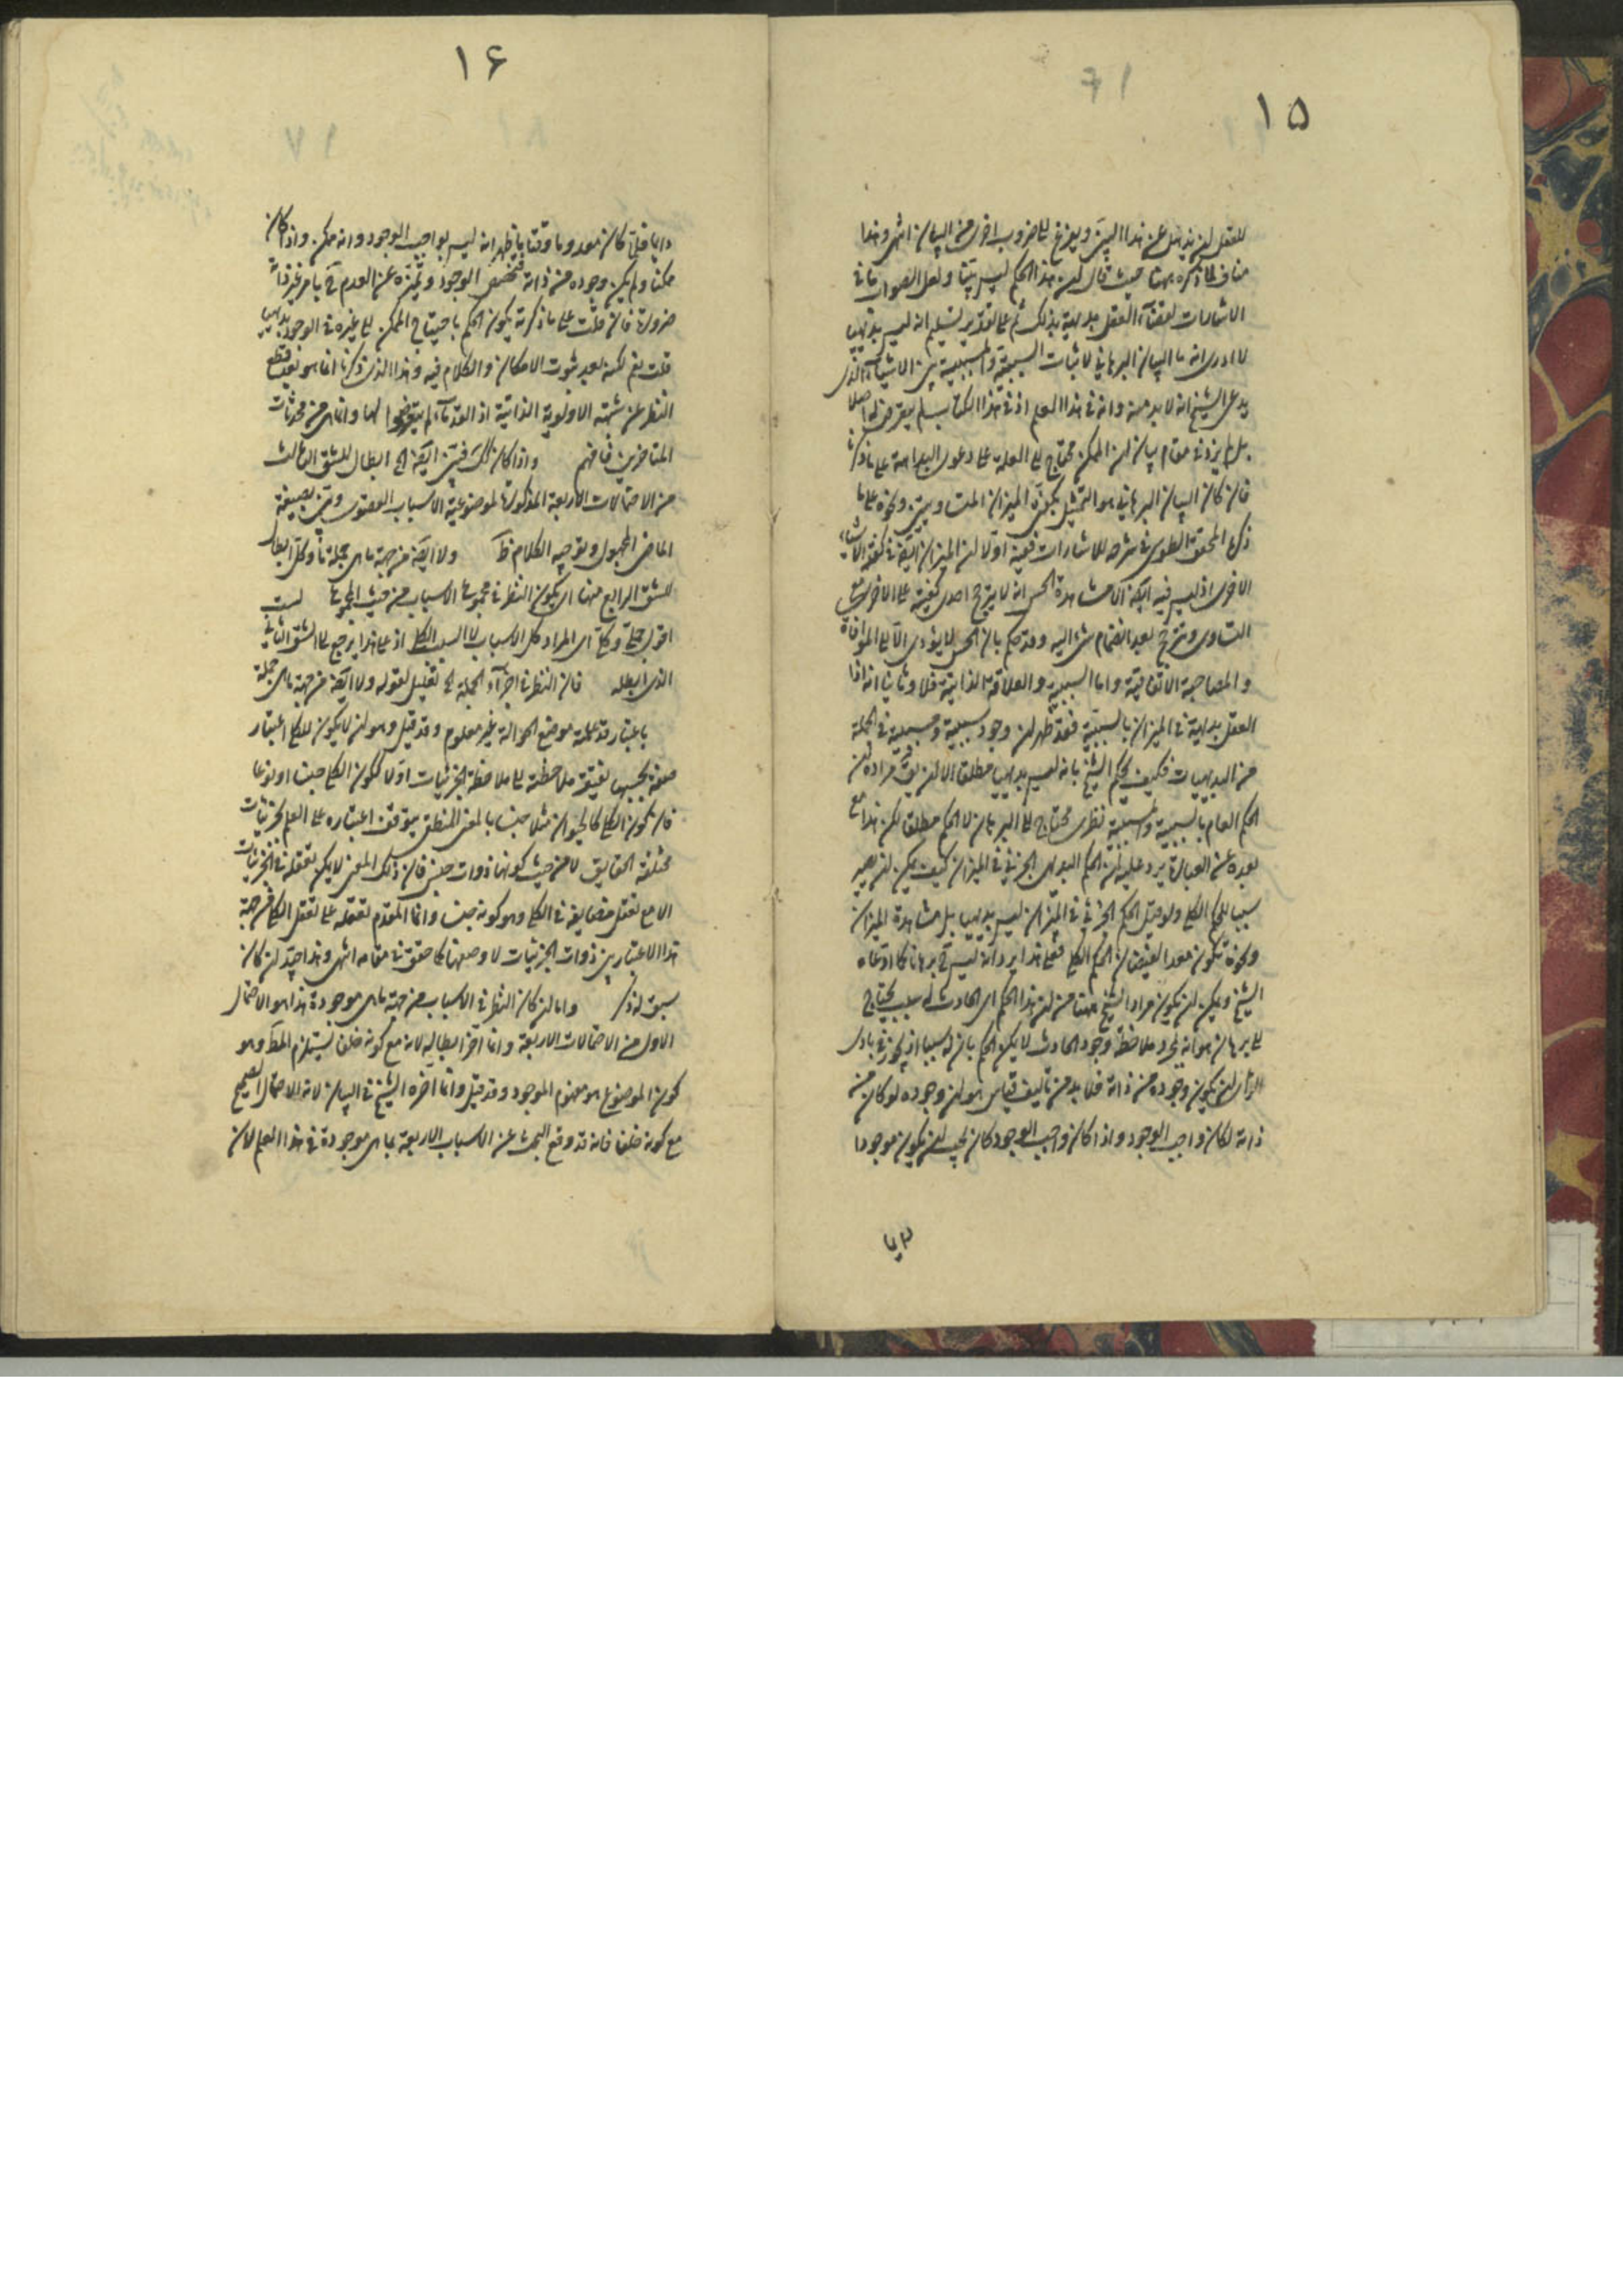 ١٥
للعقل ان يذهل عن هذا البيّن ويفزع الى ضروب اخرى من البيان انتهى وهذا
مناف لما ذكره ههنا حيث قال ان هذا الحكم ليس بيّنا ولعل الصواب ما فى
الاشارات لقضاء العقل بداهة بذلك ثم على تقدير تسليم انه ليس بديهى
لا ادرى انه ما البيان البرهانى لاثبات السببية والمسببية بين الاشياء الذى
يدعى الشيخ انه لا بد منه وانه فى هذا العلم اذ فى هذا الكتاب لم يتعرض له اصلا
بل لم يزد فى مقام بيان ان الممكن محتاج الى العلة على دعوى البداهة على ما ذكرنا
فان كان البيان البرهانى هو التمثيل بكفتى الميزان المتساويتين ونحوه على ما
ذكره المحقق الطوسى فى شرحه للاشارات ففيه اولا ان الميزان ايضا
الاخرى اذ ليس فيه ايضا الا مشاهدة الحس انه لا يترجح احدى كفتيه على الاخرى مع
التساوى وتترجح بعد انضمام شىء اليه وقد حكم بان الحس لا يؤدى الا الى الموافاة
والمصاحبة الاتفاقية واما السببية والعلاقة الذاتية فلا وثانيا انه اذا
العقل بداهة فى الميزان بالسببية فقد ظهر ان وجود سببية ومسببية فى الجملة
من البديهيات فكيف يحكم الشيخ بانه ليس بديهيا مطلقا الا ان يقال مراده ان
الحكم العام بالسببية والمسببية نظرى محتاج الى البرهان لا الحكم مطلقا لكن هذا مع
بعده عن العبارة يرد عليه ان الحكم البديهى الجزئى فى الميزان كيف يمكن ان يصير
سببا للحكم الكلى ولو قيل الحكم الجزئى فى الميزان ليس بديهيا بل مشاهدة الميزان
ونحوه تكون معدا لفيضان الحكم الكلى فعلى هذا يرد انه ليس ح برهانا كما ادعاه
الشيخ ويمكن ان يكون مراد الشيخ ههنا من ان هذا الحكم اى الحادث له سبب يحتاج
الى برهان هو انه بمجرد ملاحظة وجود الحادث لا يمكن الحكم بان له سببا اذ يجوز فى بادى
الراى ان يكون وجوده من ذاته فلا بد من تاليف قياس هو ان وجوده لو كان من
ذاته لكان واجب الوجود واذا كان واجب الوجود كان يجب ان يكون موجودا
١۶
دايما فلما كان معدوما وقتا ما ظهر انه ليس بواجب الوجود وانه ممكن واذا كان
ممكنا ولم يكن وجوده من ذاته فتخصص الوجود وتميّزه عن العدم ح بامر غير ذاته
ضرورة فان قلت على ما ذكرته يكون الحكم باحتياج الممكن الى غيره فى الوجود بديهيا
قلت نعم لكنه بعد ثبوت الامكان والكلام فيه وهذا الذى ذكرنا انما هو بعد قطع
النظر عن شبهة الاولوية الذاتية اذ القدماء لم يتعرضوا لها وانما هى من محدثات
المتاخرين فافهم واذا كان كك فبيّن ايضا الخ ابطال للشق الثالث
من الاحتمالات الاربعة المذكورة لموضوعية الاسباب القصوى وبيّن بصيغة
الماضى المجهول وتوجيه الكلام ظ ولا ايضا من جهة ما هى جملة ما وكل ابطال
للشق الرابع منها اى يكون النظر فى مجموع الاسباب من حيث المجموع لست
اقول جملى وكلى اى المراد كل الاسباب لا السبب الكلى اذ على هذا يرجع الى الشق الثانى
الذى ابطله فان النظر فى اجزاء الجملة الخ تعليل لقوله ولا ايضا من جهة ما هى جملة
باعتبار قد علمته موضع الحوالة غير معلوم وقد قيل وهو ان لا يكون للكلى اعتبار
صفة بحسبها يفتقر ملاحظته الى ملاحظة الجزئيات اولا ككون الكلى جنسا او نوعا
فان كون الكلى كالحيوان مثلا جنسا بالمعنى المنطقى يتوقف اعتباره على العلم بجزئيات
مختلفة الحقايق لا من حيث كونها ذوات جنس فان ذلك المعنى لا يمكن تعقله فى الجزئيات
الا مع تعقل مضايفه فى الكلى وهو كونه جنسا وانما المقدم تعقله على تعقل الكلى من جهة
هذا الاعتبار هى ذوات الجزئيات لا وصفها كما حقق فى مقامه انتهى وهذا جيد ان كان
سبق له ذكر واما ان كان النظر فى الاسباب من جهة ما هى موجودة هذا هو الاحتمال
الاول من الاحتمالات الاربعة وانما اخر ابطاله لانه مع كونه خلفا يستلزم المط وهو
كون الموضوع هو مفهوم الموجود وقد قيل وانما اخره الشيخ فى البيان لانه الاحتمال الصحيح
مع كونه خلفا فانه قد وقع البحث عن الاسباب الاربعة بما هى موجودة فى هذا العلم لان